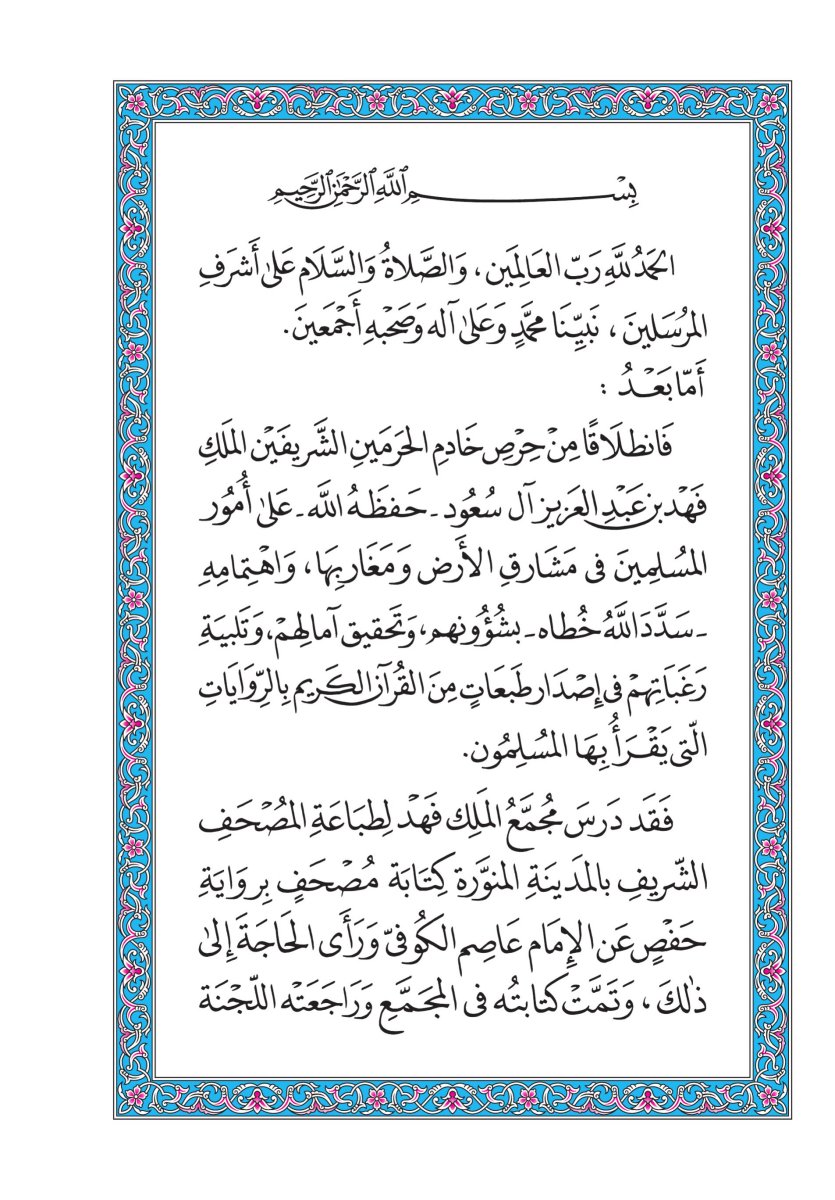 بِسْمِ ٱللَّهِ ٱلرَّحْمَٰنِ ٱلرَّحِيمِ
الحَمْدُ للَّهِ رَبِّ العَالَمِين، وَالصَّلاةُ وَالسَّلَام عَلىٰ أَشرَفِ
المرُسَلينَ، نَبيِّنَا محمَّدٍ وَعَلىٰ آله وَصَحْبهِ أَجْمَعينَ.
أَمّا بَعْدُ :
فَانطلَاقًا مِنْ حِرْصِ خَادمِ الحَرَمَينِ الشَّريفَيْن الملَكِ
فَهْد بن عَبْدِ العَزيز آل سُعُود ـ حَفظَهُ اللَّه ـ عَلىٰ أُمُوُر
المسُلِمينَ فى مَشَارقِ الأَرض وَمَغَاربِهَا، وَاهْتِمامِهِ
ـ سَدَّدَ اللَّهُ خُطاه ـ بشُؤُونهم، وَتَحقيق آمالِهمْ، وَتَلبيَةِ
رَغَبَاتِهمْ فى إصْدَار طَبَعَاتٍ مِنَ القُرآن الكَريم بِالرِّوَايَاتِ
الّتى يَقْرَأُ بِهَا المسُلِمُون.
فَقَد دَرَسَ مُجمَّعُ الملَكِ فَهْد لِطبَاعَةِ المصُْحَفِ
الشّريفِ بالمَدينَةِ المنوَّرة كِتَابَة مُصْحَفٍ بروَايَةِ
حَفْصٍ عَن الإمَام عَاصِم الكُوفىّ وَرَأَى الحَاجَةَ إلىٰ
ذٰلكَ، وَتَمَّتْ كتابتُه فى المجَمَّعِ وَرَاجَعَتْه اللّجْنَة